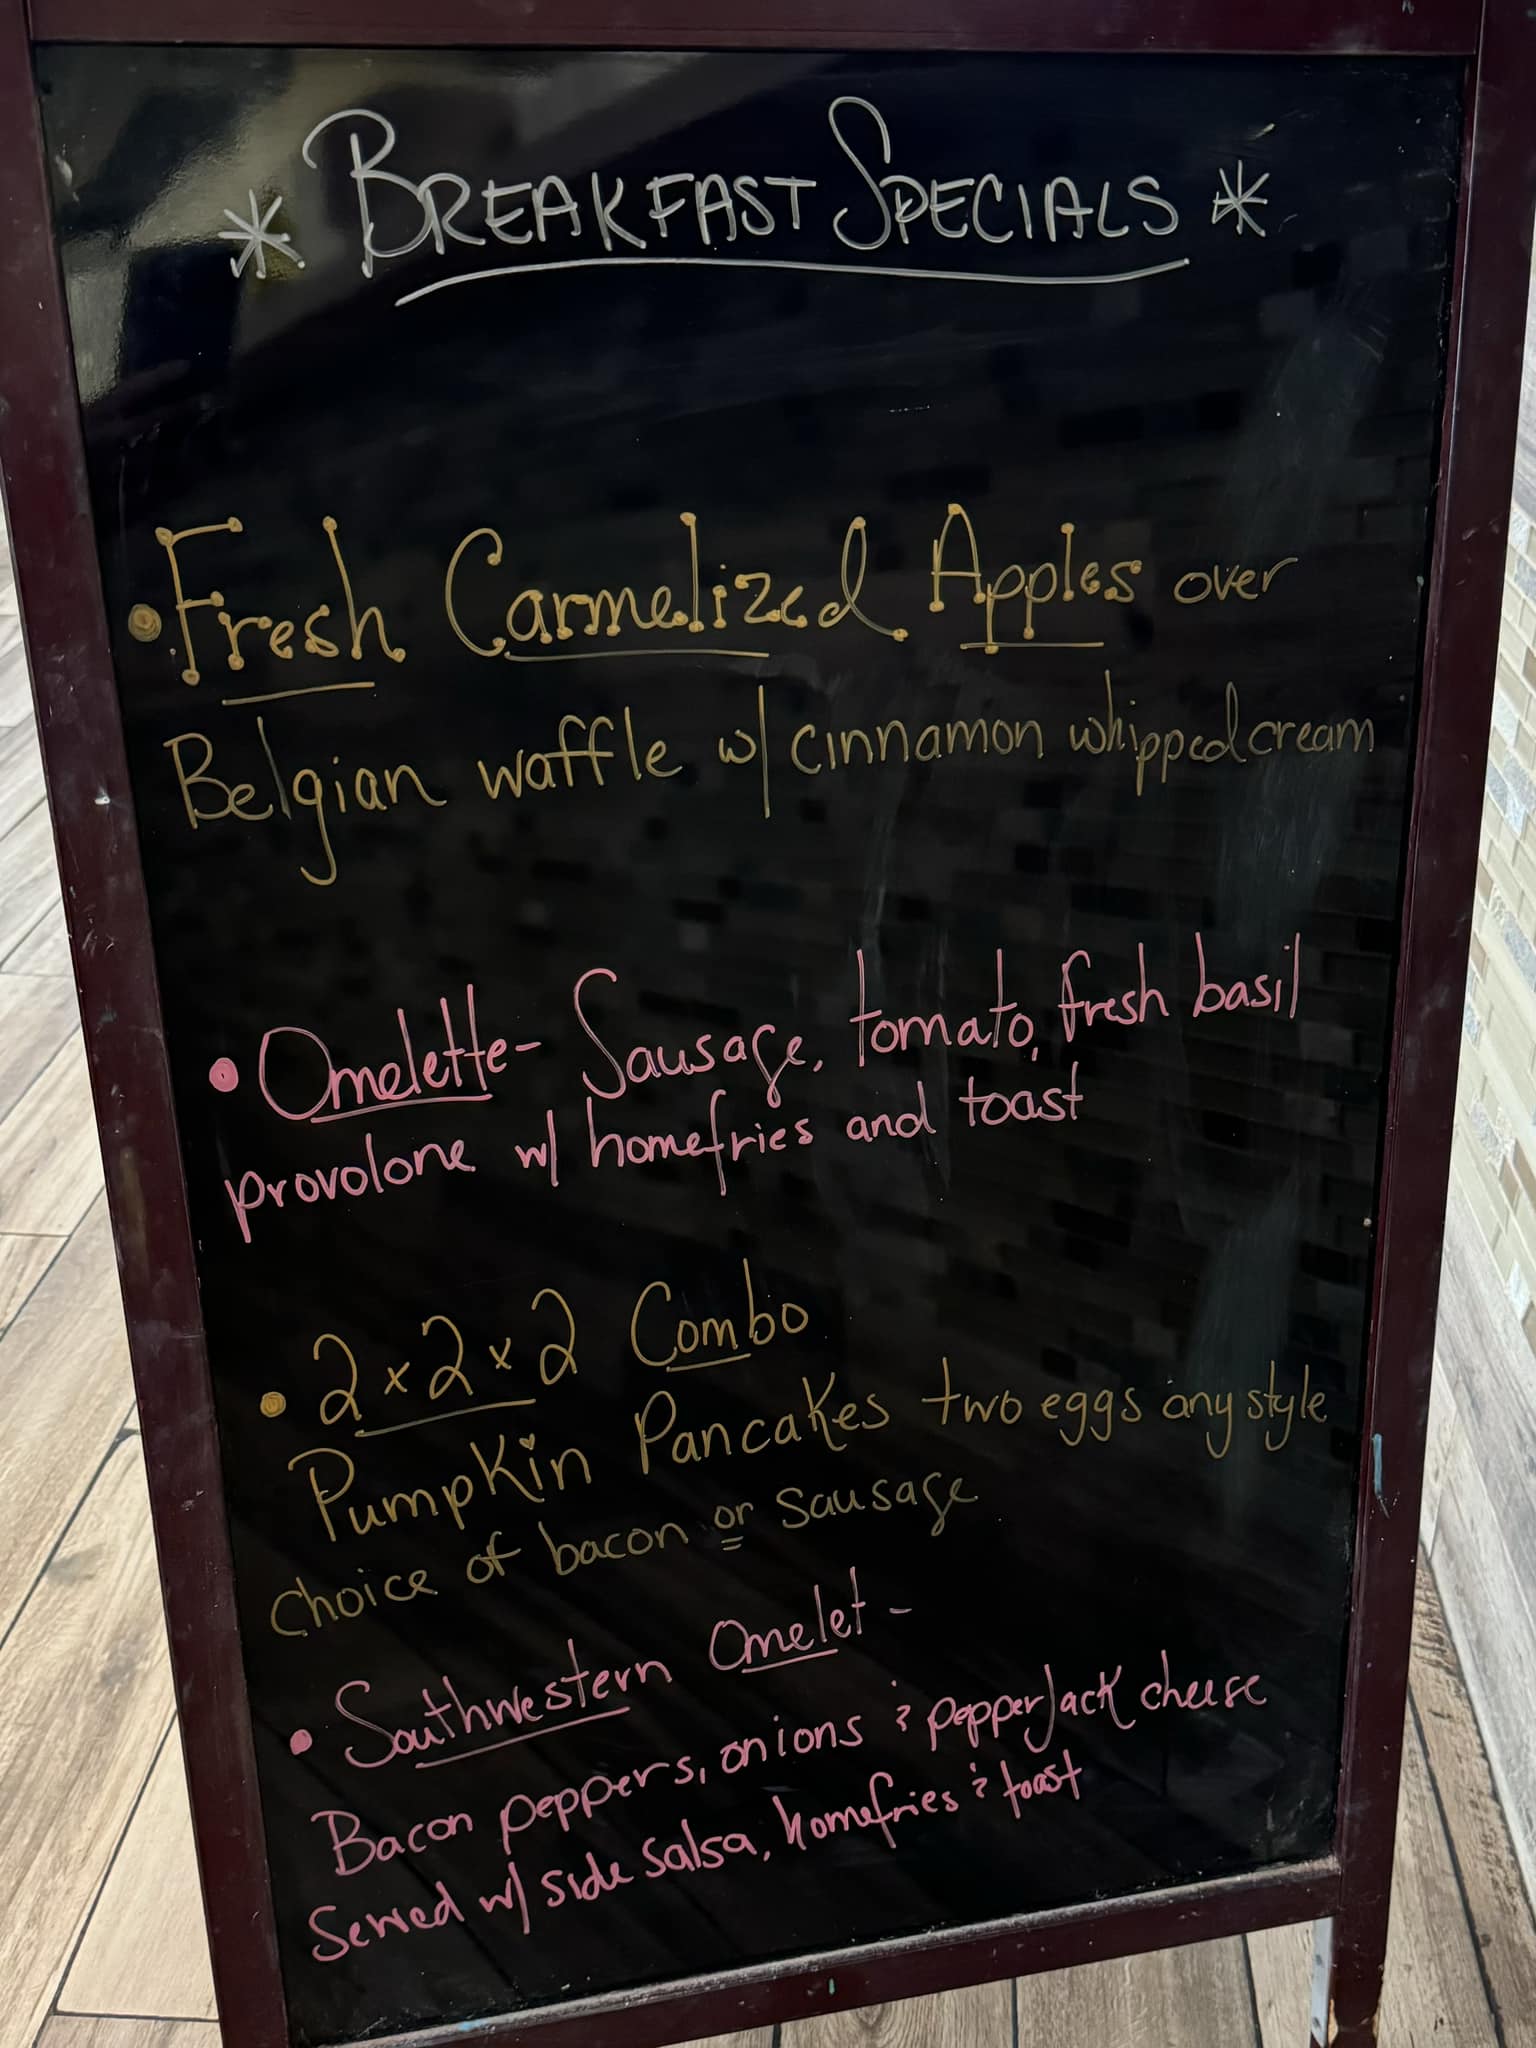 * BREAKFAST SPECIALS *
• Fresh Carmelized Apples over
Belgian waffle w/ cinnamon whipped cream
• Omelette - Sausage, tomato, fresh basil
provolone w/ homefries and toast
• 2 x 2 x 2 Combo
Pumpkin Pancakes two eggs any style
choice of bacon or sausage
• Southwestern Omelet -
Bacon peppers, onions & pepperJack cheese
Served w/ side salsa, homefries & toast